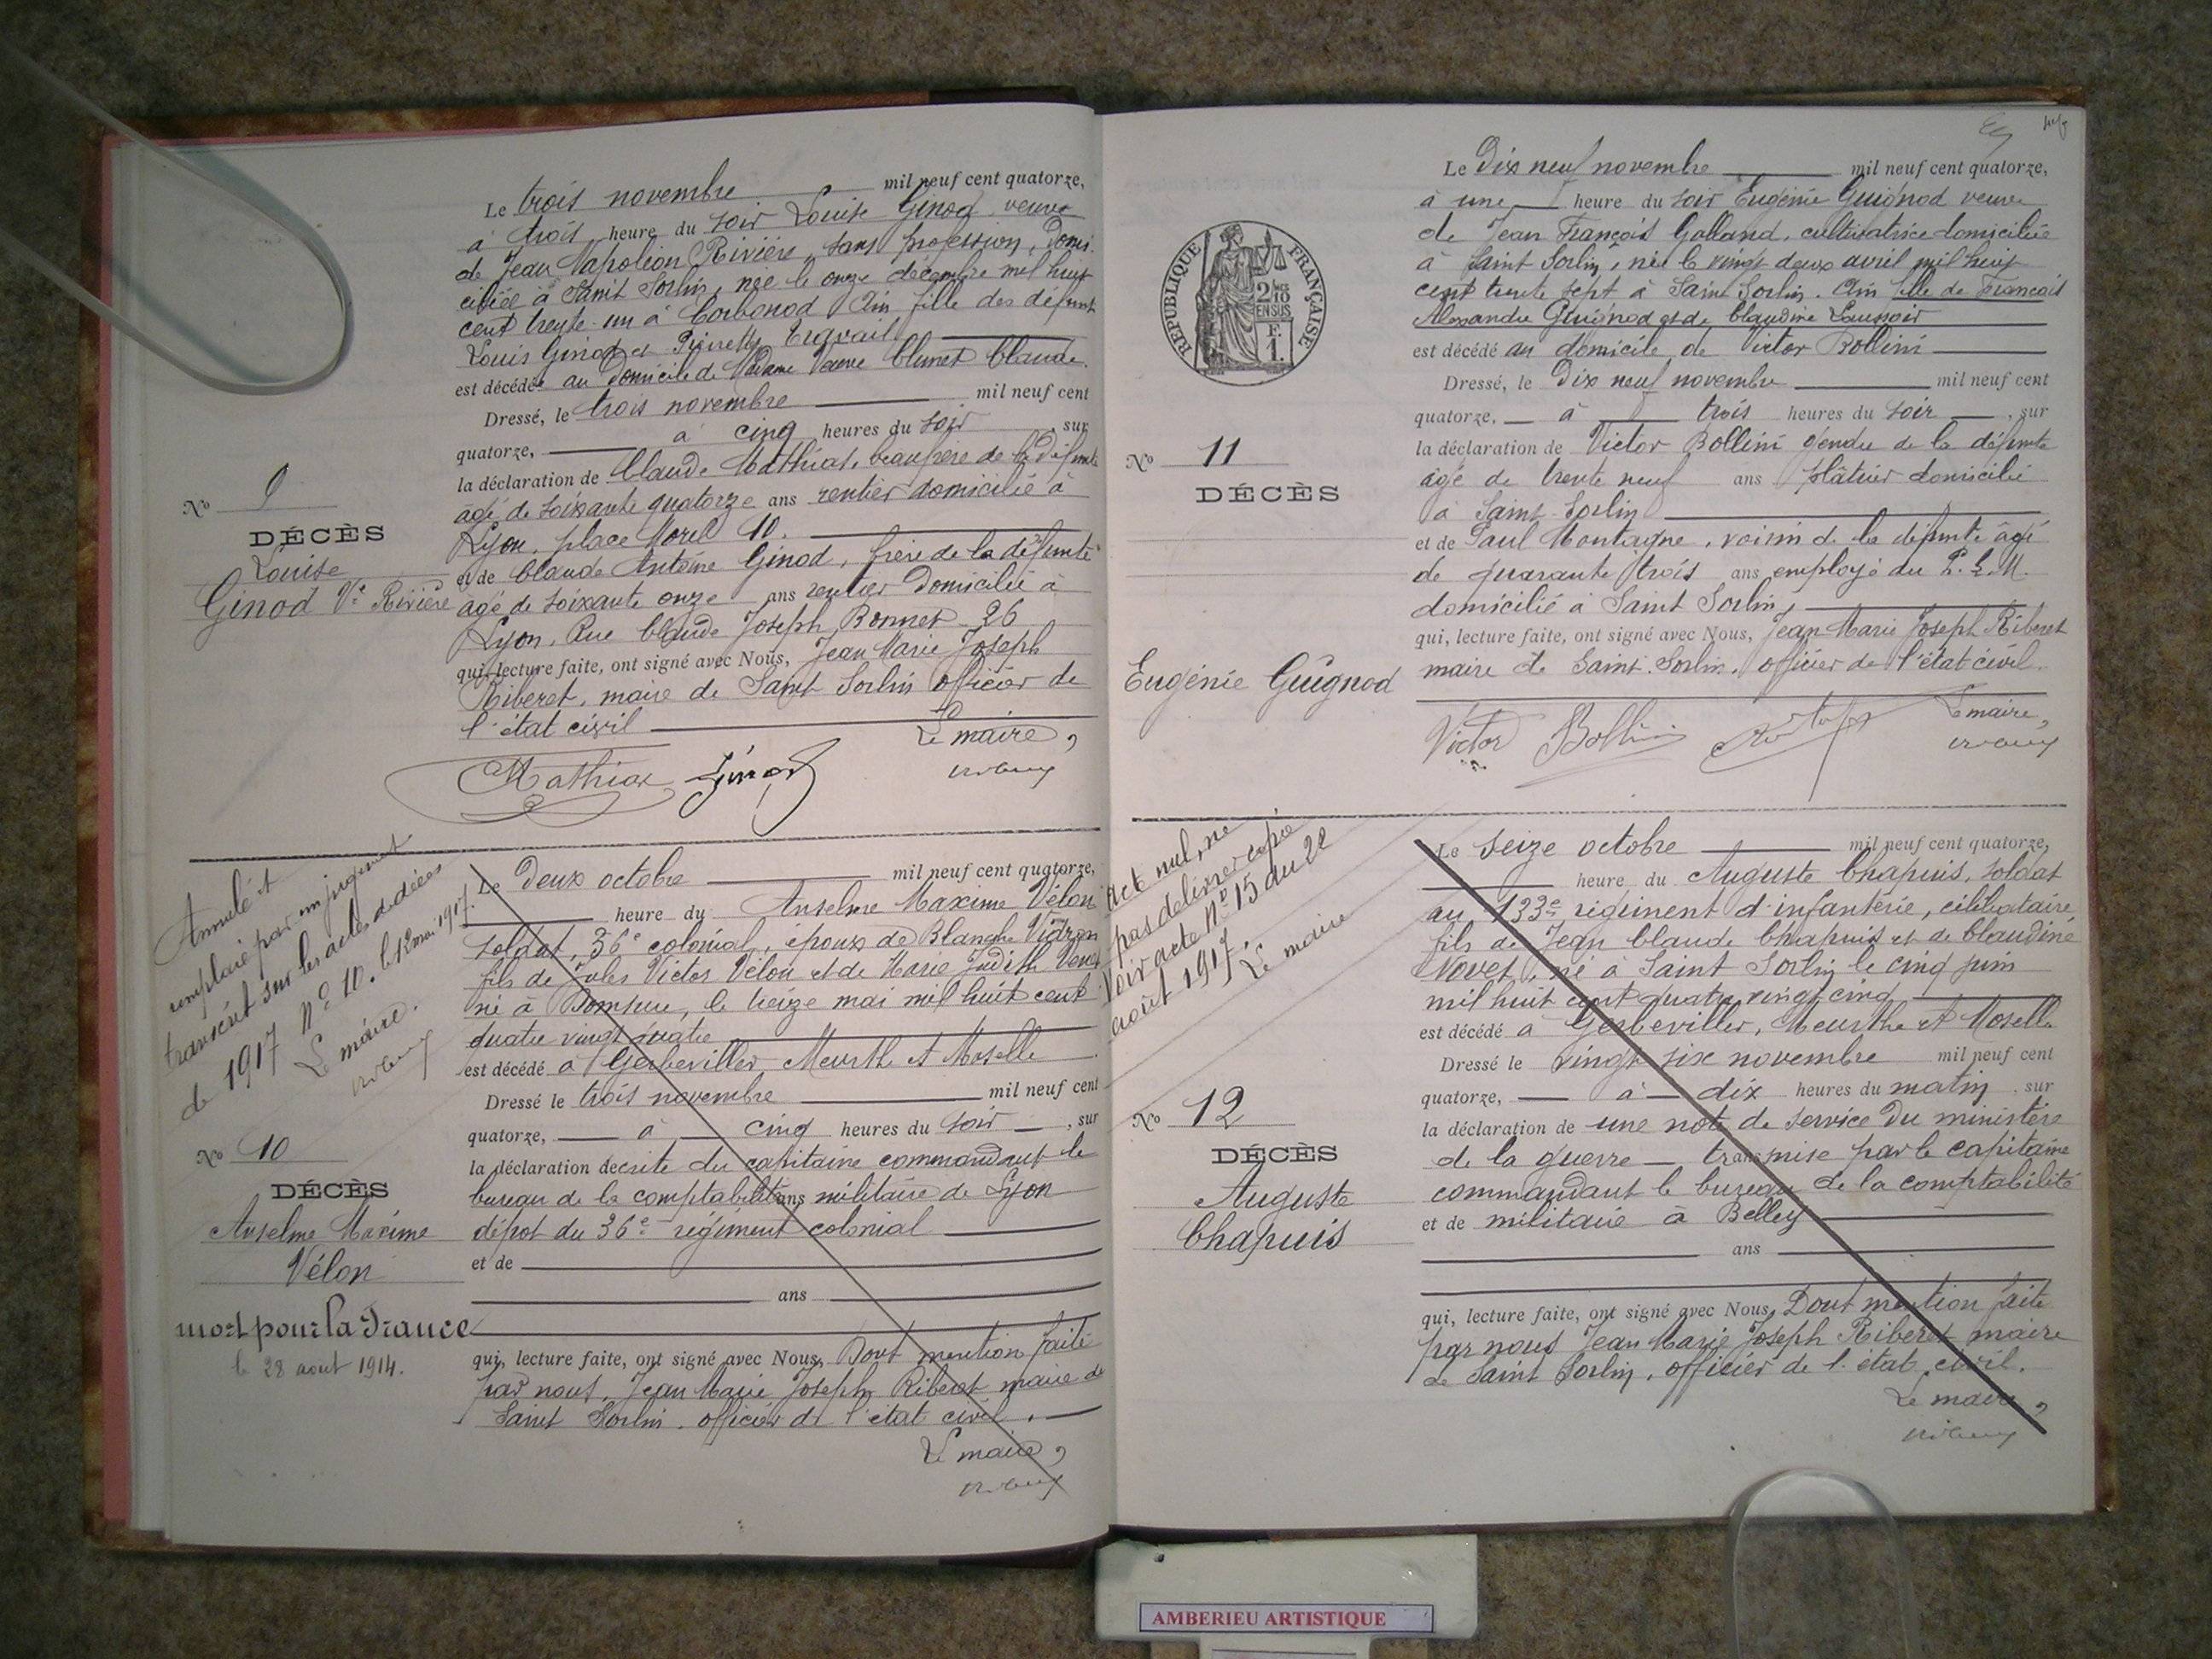 Le trois novembre mil neuf cent quatorze,
à trois heure du soir Louise Ginod veuve
de Jean Napoléon Rivière, sans profession, domi
ciliée à Saint Sorlin, née le onze décembre mil huit
cent trente-un à Corbonod Ain fille des défunt
Louis Ginod et Pierrette
est décédée au Domicile de Madame Veuve Claude.
Dressé, le trois novembre mil neuf cent
quatorze, à cinq heures du soir, sur
la déclaration de Claude Mathias, beaupère de la défunte
agé de soixante quatorze ans rentier domicilié à
Lyon, place Morel 10.
et de Claude Antoine Ginod, frère de la défunte
âgé de soixante onze ans rentier Domicilié à
Lyon, Rue Claude Joseph Bonnet 26
qui, lecture faite, ont signé avec Nous, Jean Marie Joseph
Riberet, maire de Saint Sorlin officier de
l'état civil
Le maire,
Mathias Ginod
No 9
DÉCÈS
Louise
Ginod Ve Rivière
Annulé et
remplacé par un jugement
transcrit sur les actes de décès
de 1917 No 10. le 12 mai 1917.
Le maire.
No 10
DÉCÈS
Anselme Maxime
Vélon
mort pour la France
le 28 aout 1914.
Le Deux octobre mil neuf cent quatorze,
heure du Anselme Maxime Vélon
soldat, 36e colonial, époux de Blanche
fils de Jules Victor Vélon et de Marie Judith
né à le treize mai mil huit cent
quatre vingt quatre
est décédé à Gerbeviller, Meurthe et Moselle
Dressé le trois novembre mil neuf cent
quatorze, à cinq heures du soir, sur
la déclaration décrite du capitaine commandant le
bureau de la comptabilité ans militaire de Lyon
dépot du 36e régiment colonial
et de
ans
qui, lecture faite, ont signé avec Nous, Dont mention faite
par nous, Jean Marie Joseph Riberet maire de
Saint Sorlin, officier de l'état civil.
Le maire,
RÉPUBLIQUE FRANÇAISE
2/10
EN SUS
F.
1.
Le Dix neuf novembre mil neuf cent quatorze,
à une heure du soir Eugénie Guignod veuve
de Jean François Golland, cultivatrice domiciliée
à Saint Sorlin, née le vingt deux avril mil huit
cent trente sept à Saint Sorlin. Ain fille de François
Alexandre Guignod et de Claudine
est décédé au domicile de Victor Bollini
Dressé, le Dix neuf novembre mil neuf cent
quatorze, à trois heures du soir, sur
la déclaration de Victor Bollini gendre de la défunte
agé de trente neuf ans plâtrier domicilié
à Saint-Sorlin
et de Paul Montagne, voisin de la défunte âgé
de quarante trois ans employé du P.L.M.
domicilié à Saint Sorlin,
qui, lecture faite, ont signé avec Nous, Jean-Marie Joseph Riberet
maire de Saint-Sorlin, officier de l'état civil.
Victor Bollini
Le maire,
No 11
DÉCÈS
Eugénie Guignod
Acte nul, ne
pas délivrer copie
Voir acte No 15 du 22
août 1917.
Le maire
No 12
DÉCÈS
Auguste
Chapuis
Le seize octobre mil neuf cent quatorze,
heure du Auguste Chapuis, soldat
au 133e régiment d'infanterie, célibataire
fils de Jean Claude Chapuis et de Claudine
Novet, né à Saint Sorlin le cinq juin
mil huit cent quatre vingt cinq
est décédé à Gerbeviller, Meurthe et Moselle
Dressé le vingt six novembre mil neuf cent
quatorze, à dix heures du matin, sur
la déclaration de une note de service du ministère
de la guerre transmise par le capitaine
commandant le bureau de la comptabilité
et de militaire à Belley
ans
qui, lecture faite, ont signé avec Nous, Dont mention faite
par nous Jean Marie Joseph Riberet maire
de Saint Sorlin, officier de l'état civil.
Le maire,
AMBERIEU ARTISTIQUE